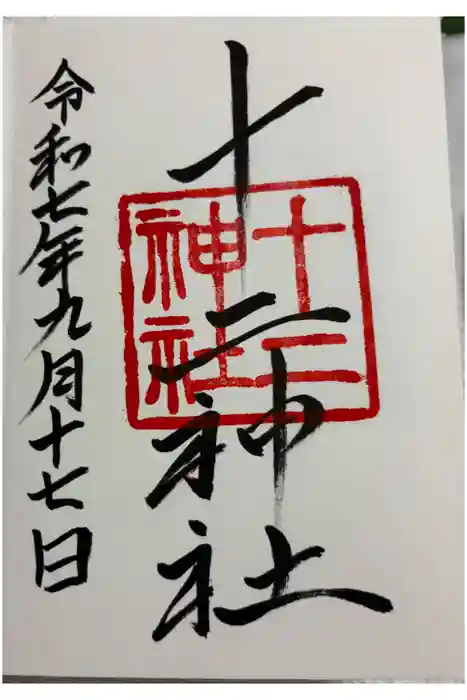 十二神社
十二神社
令和七年九月十七日